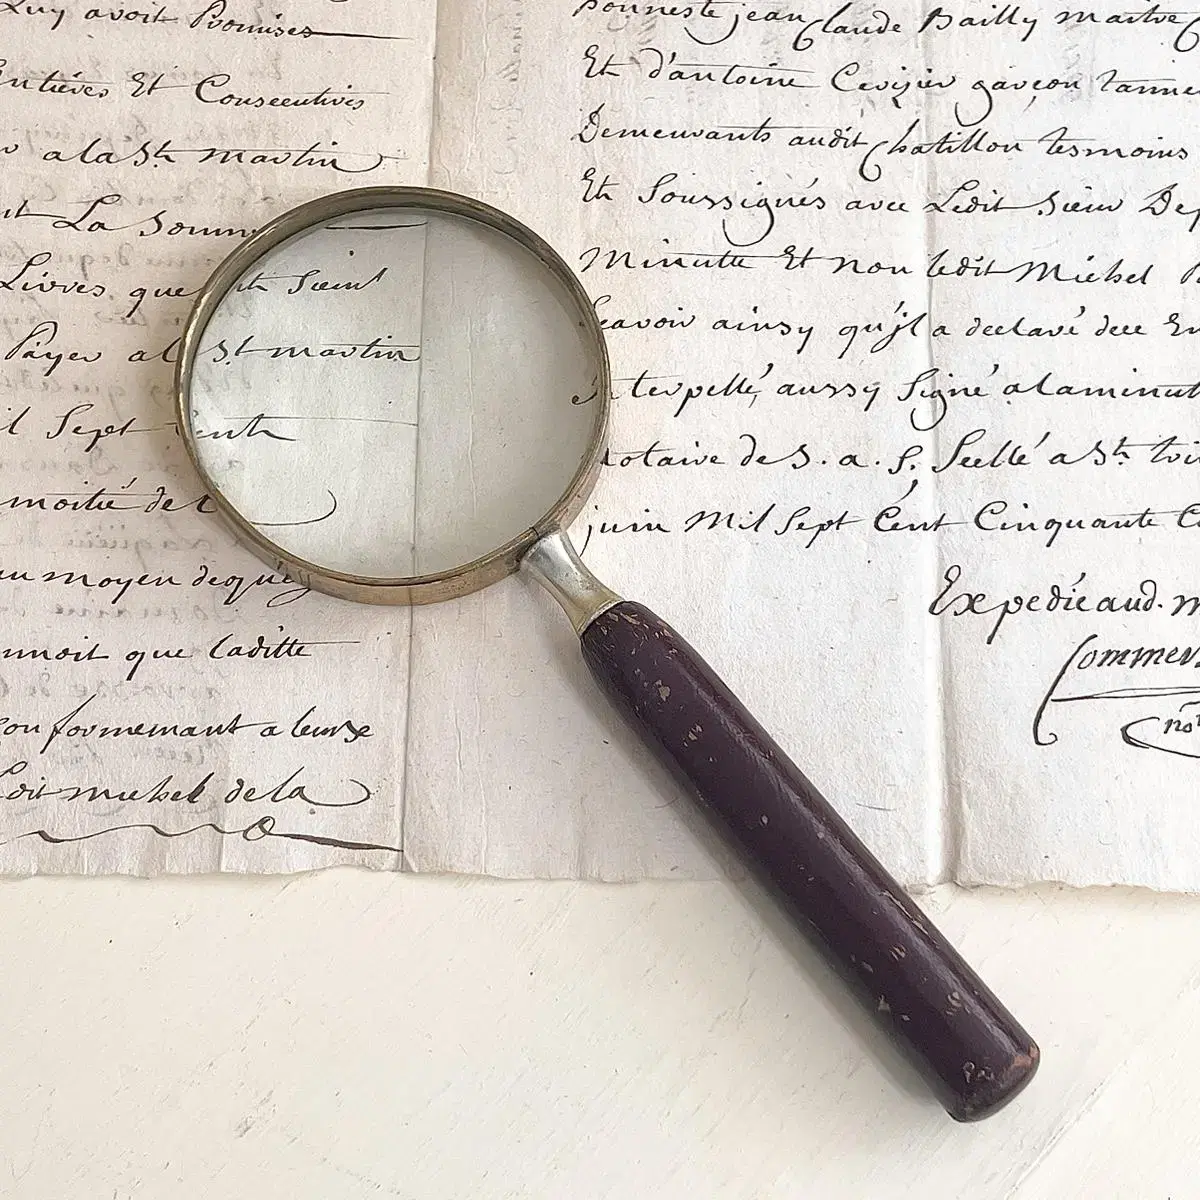 Luy avoit Promises
Entiéres Et Consecutives
a la St martin
La Somm
Livres que
Sieint
Payer al St martin
il Sept Cent
moitié de
au moyen dequoy
que laditte
Conformemant a leurs
Ledit michel dela
honneste jean Claude Bailly maitre
Et d'antoine Cerisier garçon tanne
Demeurants audit Chatillon tesmoins
Et Soussignés avec Ledit Sieur De
Minutte Et non ledit Michel
Scavoir ainsy qu'jl a declaré dee En
terpellé, aussy Signé alaminut
notaire de S. a. S. Scellé a St
juin Mil Sept Cent Cinquante
Expedié aud.
Commer